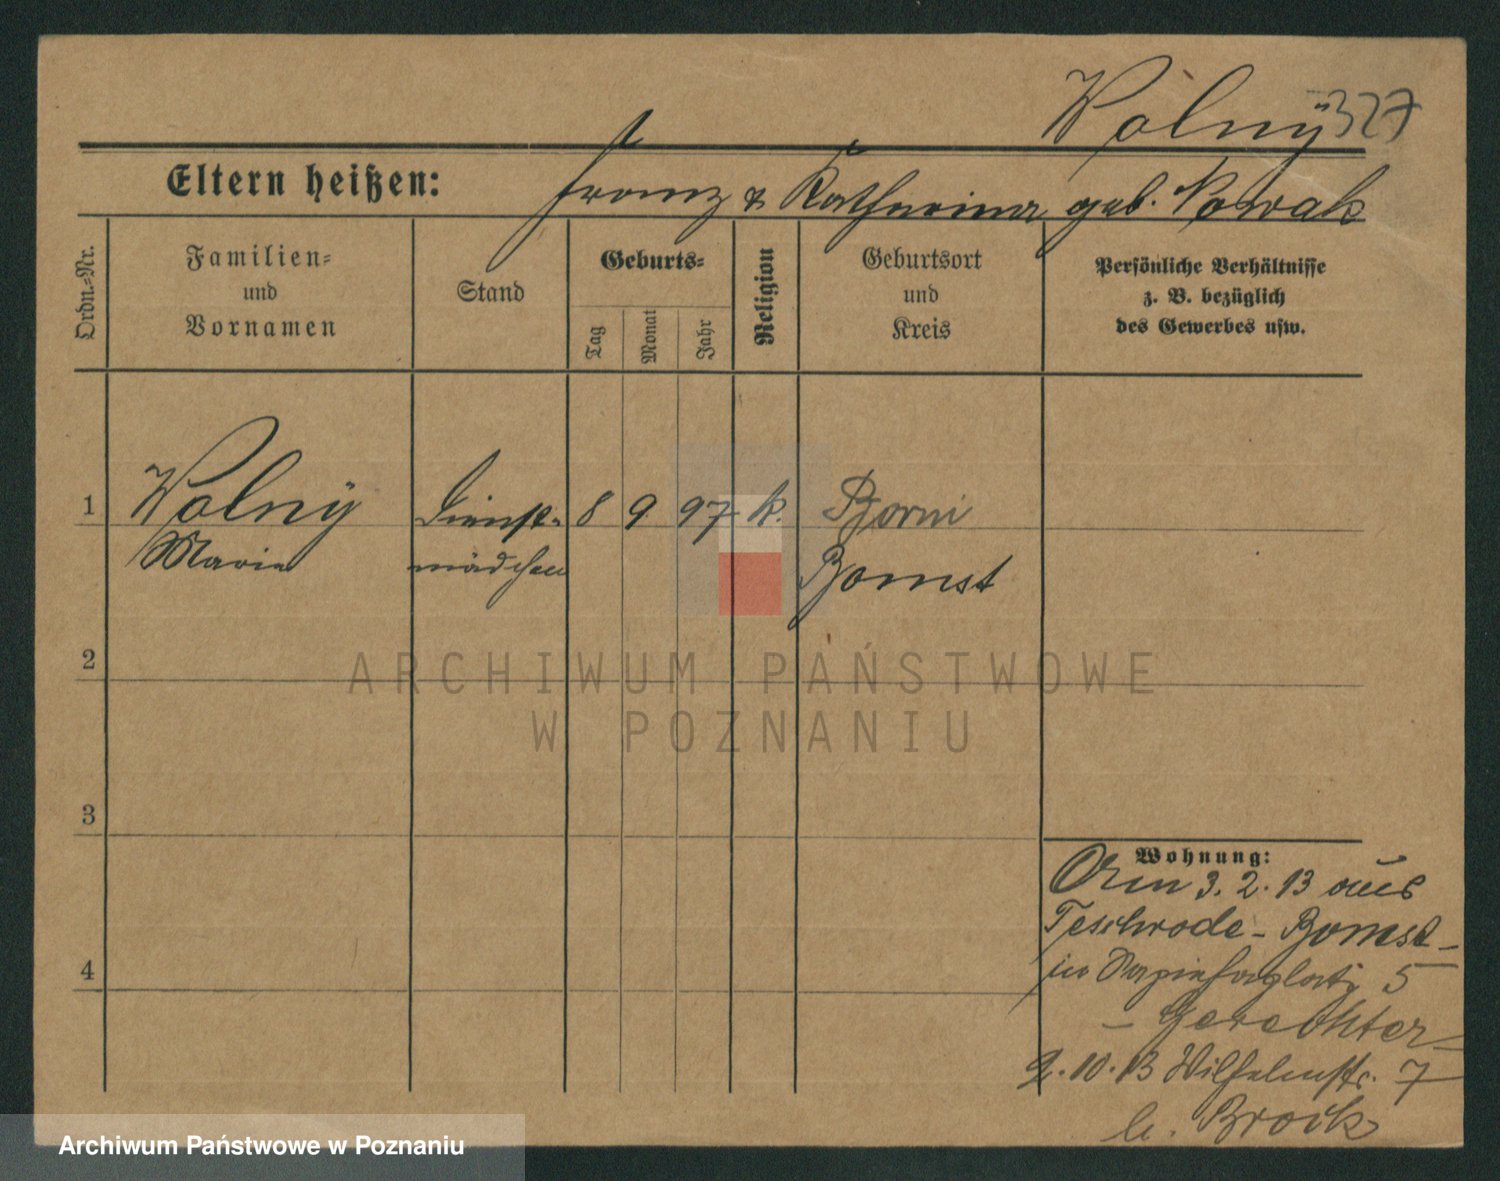 Wolnÿ 327
Eltern heißen: Franz & Katharina geb. Nowak
Ordn.-Nr.
Familien-
und
Vornamen
Stand
Geburts-
Tag
Monat
Jahr
Religion
Geburtsort
und
Kreis
Persönliche Verhältnisse
z. B. bezüglich
des Gewerbes usw.
1 Wolnÿ Dienst- 8 9 97 k. Borui
Marie mädchen Bomst
2
3
4
Wohnung:
Am 3. 2. 13 aus
Teschrode - Bomst -
in Sapiehaplatz 5
- Gerechter -
2. 10. 13 Wilhelmstr. 7
b. Brock
ARCHIWUM PAŃSTWOWE
W POZNANIU
Archiwum Państwowe w Poznaniu